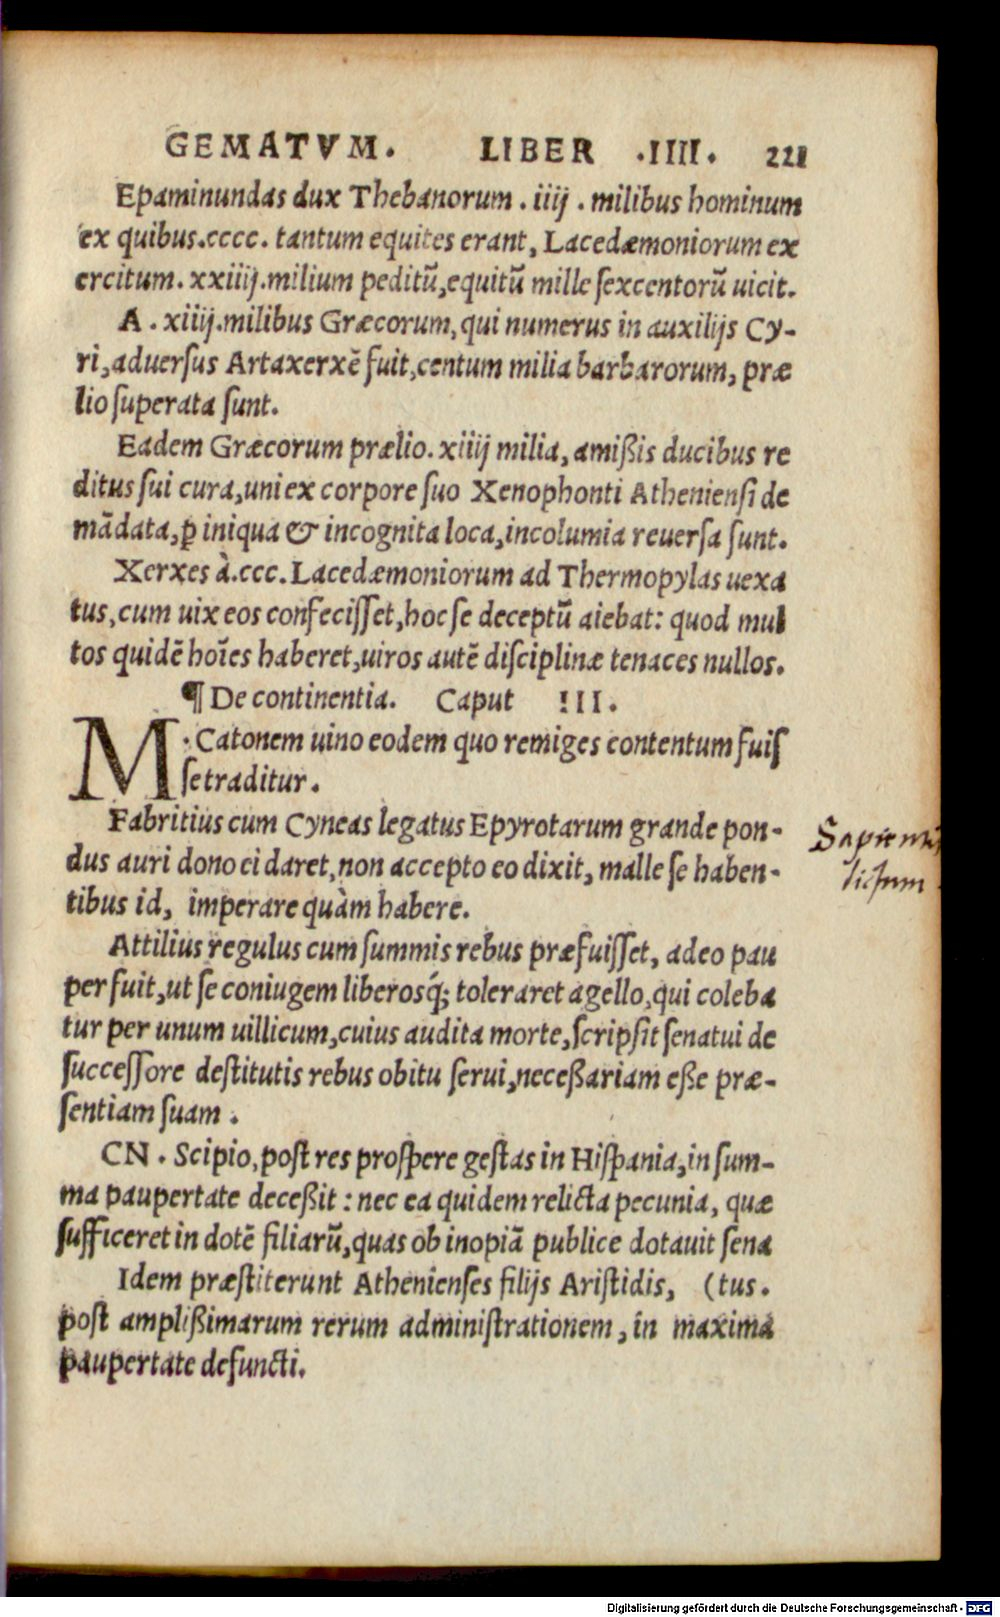 GEMATVM. LIBER .IIII. 221
Epaminundas dux Thebanorum . iiij . milibus hominum
ex quibus.cccc. tantum equites erant, Lacedæmoniorum ex
ercitum. xxiiij.milium peditū,equitū mille ſexcentorū uicit.
A . xiiij.milibus Græcorum, qui numerus in auxilijs Cy-
ri,aduerſus Artaxerxē fuit,centum milia barbarorum, præ
lio ſuperata ſunt.
Eadem Græcorum prælio. xiiij milia, amißis ducibus re
ditus ſui cura,uni ex corpore ſuo Xenophonti Athenienſi de
mādata,ꝑ iniqua & incognita loca,incolumia reuerſa ſunt.
Xerxes à.ccc.Lacedæmoniorum ad Thermopylas uexa
tus,cum uix eos confeciſſet,hoc ſe deceptū aiebat: quod mul
tos quidē hoīes haberet,uiros autē diſciplinæ tenaces nullos.
¶ De continentia. Caput III.
M. Catonem uino eodem quo remiges contentum fuiſ
ſe traditur.
Fabritius cum Cyneas legatus Epyrotarum grande pon-
dus auri dono ei daret,non accepto eo dixit, malle ſe haben-
tibus id, imperare quàm habere.
Sapientis
dictum
Attilius regulus cum ſummis rebus præfuiſſet, adeo pau
per fuit,ut ſe coniugem liberosq́; toleraret agello,qui coleba
tur per unum uillicum,cuius audita morte,ſcripſit ſenatui de
ſucceſſore deſtitutis rebus obitu ſerui,neceßariam eße præ-
ſentiam ſuam .
CN . Scipio,poſt res proſpere geſtas in Hiſpania,in ſum-
ma paupertate deceßit : nec ea quidem relicta pecunia, quæ
ſufficeret in dotē filiarū,quas ob inopiā publice dotauit ſena
Idem præſtiterunt Athenienſes filijs Ariſtidis, (tus.
poſt amplißimarum rerum adminiſtrationem, in maxima
paupertate defuncti.
Digitalisierung gefördert durch die Deutsche Forschungsgemeinschaft - DFG